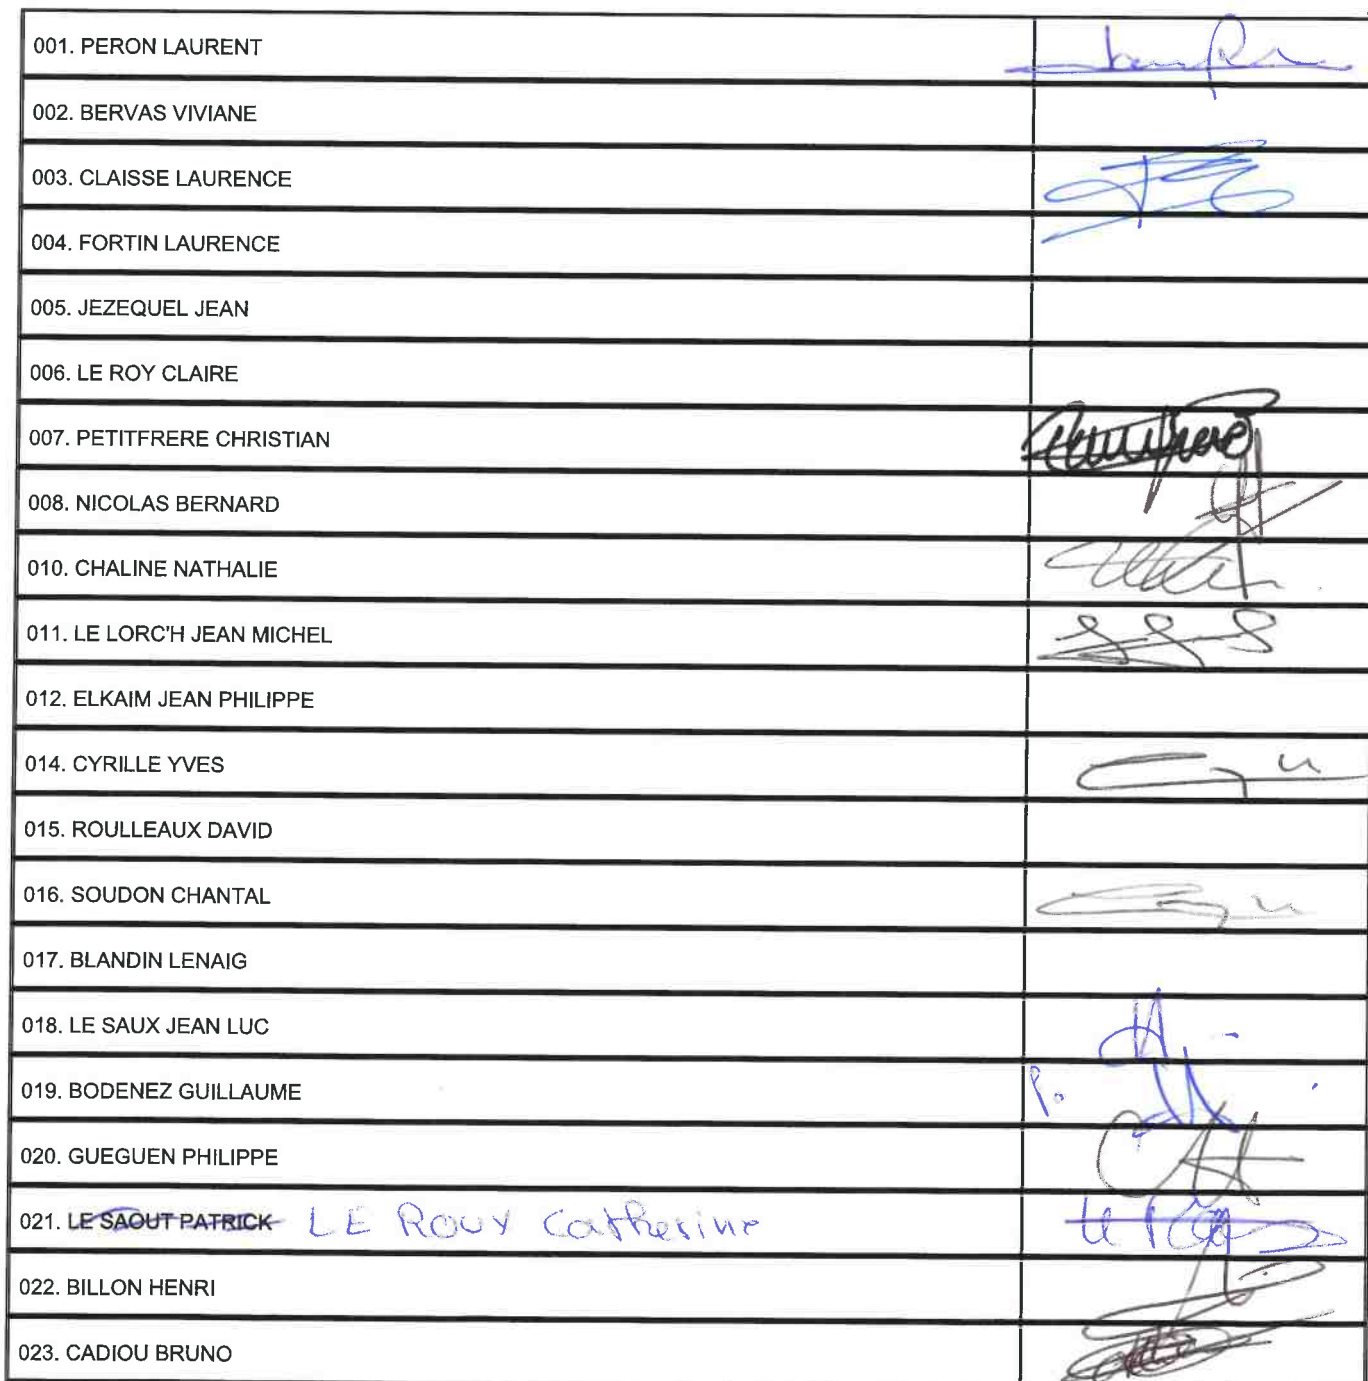 001. PERON LAURENT
002. BERVAS VIVIANE
003. CLAISSE LAURENCE
004. FORTIN LAURENCE
005. JEZEQUEL JEAN
006. LE ROY CLAIRE
007. PETITFRERE CHRISTIAN
008. NICOLAS BERNARD
010. CHALINE NATHALIE
011. LE LORC'H JEAN MICHEL
012. ELKAIM JEAN PHILIPPE
014. CYRILLE YVES
015. ROULLEAUX DAVID
016. SOUDON CHANTAL
017. BLANDIN LENAIG
018. LE SAUX JEAN LUC
019. BODENEZ GUILLAUME
020. GUEGUEN PHILIPPE
021. LE SAOUT PATRICK LE ROUX Catherine
022. BILLON HENRI
023. CADIOU BRUNO